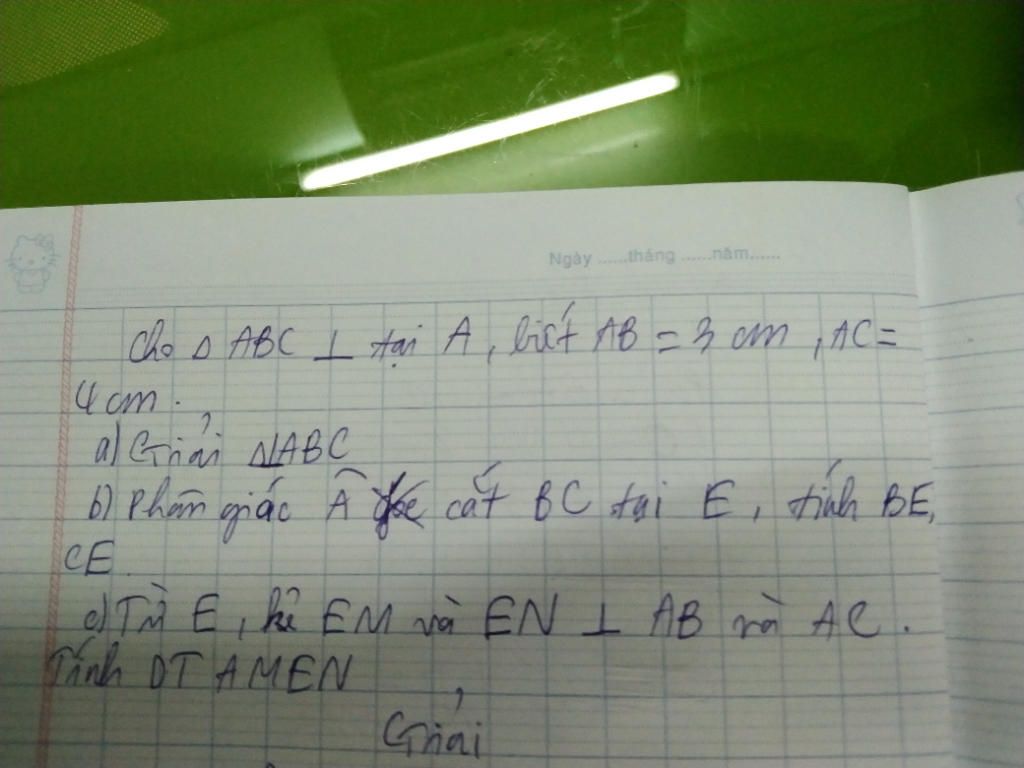 Ngày ......tháng ......năm......
Cho Δ ABC ⊥ tại A, biết AB = 3 cm, AC =
4 cm.
a) Giải ΔABC
b) Phân giác Â cắt BC tại E, tính BE,
CE
c) Từ E, kẻ EM và EN ⊥ AB và AC.
Tính DT AMEN
Giải